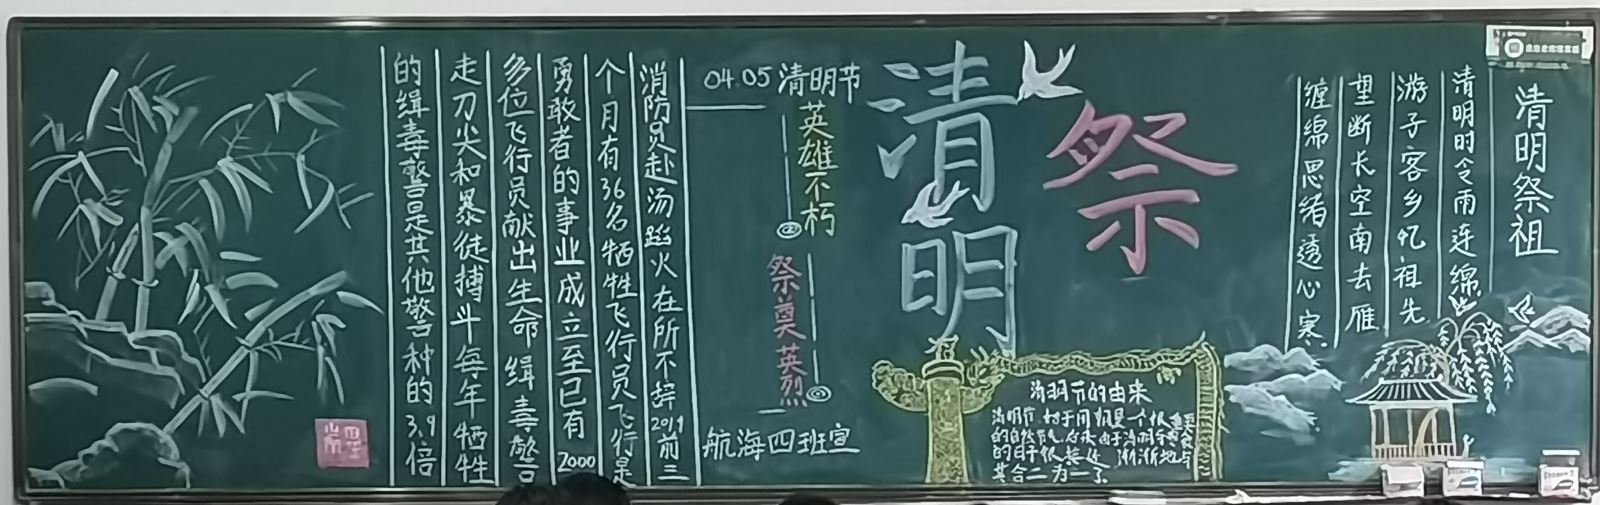 清明祭祖
清明时令雨连绵
游子客乡忆祖先
望断长空南去雁
缠绵思绪透心寒
祭
清明
清明节的由来
的自然节气
其合二为一了
04.05清明节
英雄不朽
祭奠英烈
航海四班宣
消防员赴汤蹈火在所不辞2019前三
个月有36名牺牲飞行员飞行是
勇敢者的事业成立至已有2000
多位飞行员献出生命缉毒警
走刀尖和暴徒搏斗每年牺牲
的缉毒警是其他警种的3.9倍